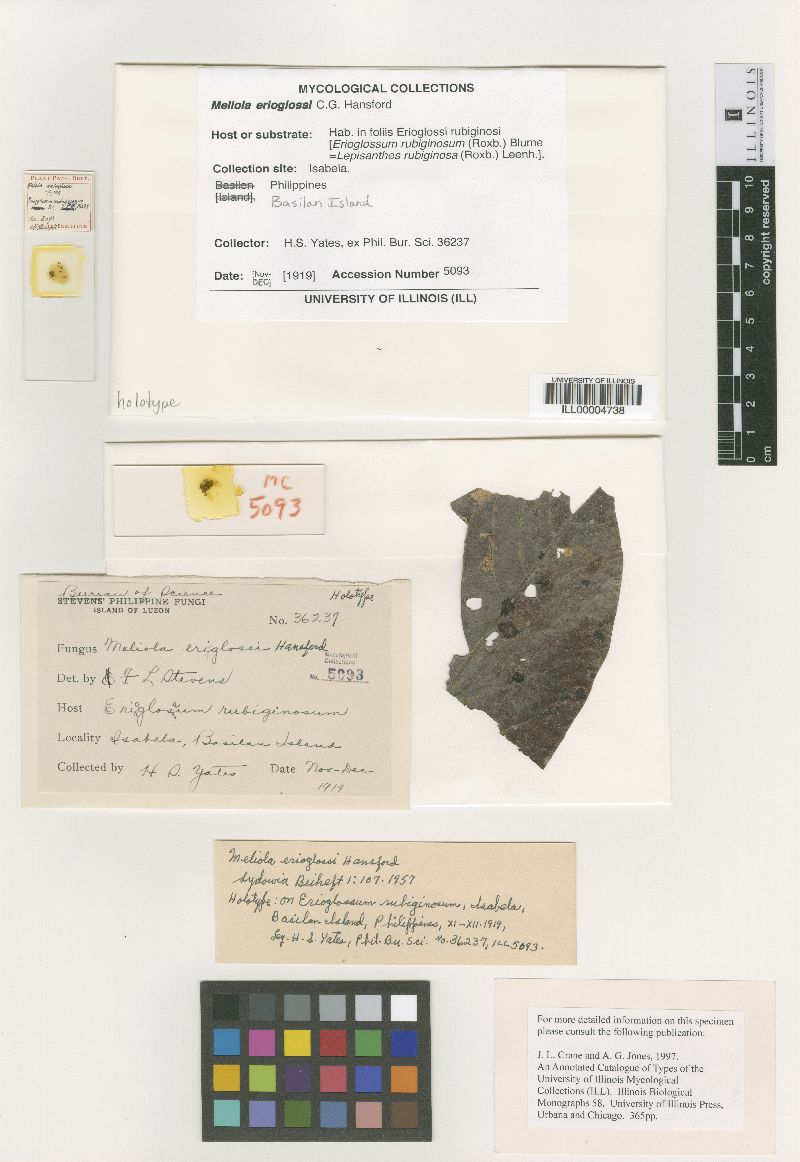 MYCOLOGICAL COLLECTIONS
Meliola erioglossi C.G. Hansford
Host or substrate: Hab. in foliis Erioglossi rubiginosi
[Erioglossum rubiginosum (Roxb.) Blume
=Lepisanthes rubiginosa (Roxb.) Leenh.].
Collection site: Isabela.
Basilen Philippines
[Island], Basilan Island
Collector: H.S. Yates, ex Phil. Bur. Sci. 36237
Date: [Nov-DEC] [1919] Accession Number 5093
UNIVERSITY OF ILLINOIS (ILL)
holotype
UNIVERSITY OF ILLINOIS
ILL00004738
PLANT PATH. DEPT.
ILLINOIS
copyright reserved
10 9 8 7 6 5 4 3 2 1 0 cm
MC
5093
Bureau of Science
STEVENS' PHILIPPINE FUNGI
ISLAND OF LUZON
Holotype
No. 36237
Fungus Meliola eriglossi Hansford
Mycological
Collections
No. 5093
Det. by F L Stevens
Host Erioglossum rubiginosum
Locality Isabela, Basilan Island
Collected by H S. Yates Date Nov-Dec-
1919
Meliola erioglossi Hansford
Sydowia Beiheft 1:107. 1957
Holotype: on Erioglossum rubiginosum, Isabela,
Basilan Island, Philippines, XI-XII.1919,
Leg. H. S. Yates, Phil. Bu. Sci. No. 36237, ILL 5093.
For more detailed information on this specimen
please consult the following publication:
J. L. Crane and A. G. Jones, 1997.
An Annotated Catalogue of Types of the
University of Illinois Mycological
Collections (ILL). Illinois Biological
Monographs 58. University of Illinois Press,
Urbana and Chicago. 365pp.